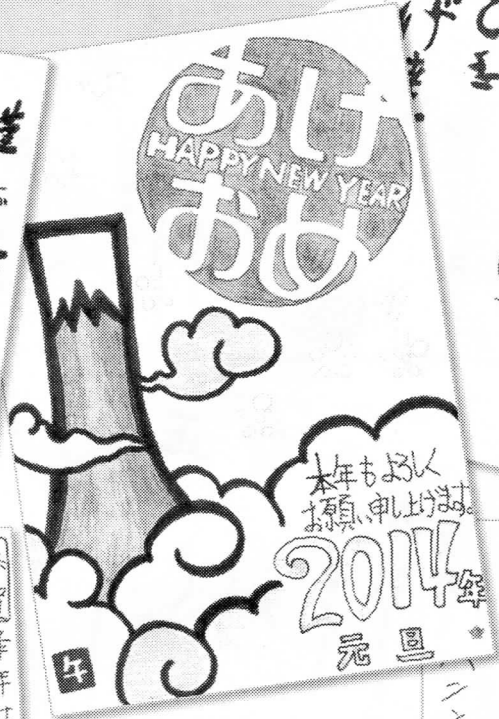 あけ
HAPPY NEW YEAR
おめ
本年もよろしく
お願い申し上げます。
2014年
元旦
午